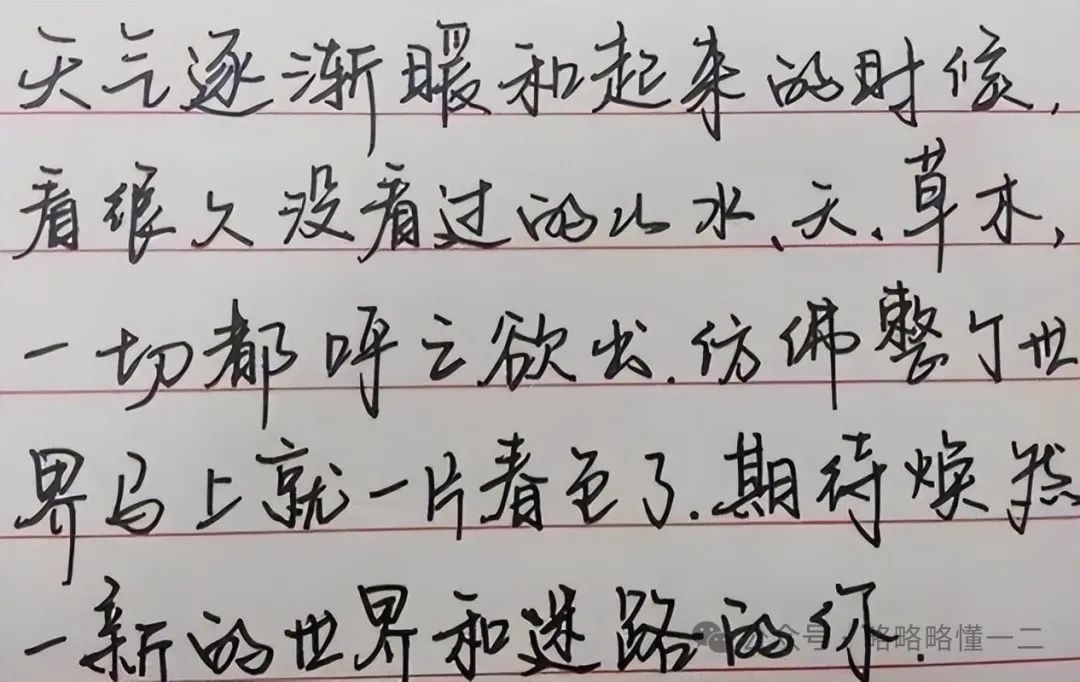 天气逐渐暖和起来的时候,
看很久没看过的山水、天、草木,
一切都呼之欲出.仿佛整个世
界马上就一片春色了.期待焕然
一新的世界和迷路的你.
公众号 · 略略略懂一二